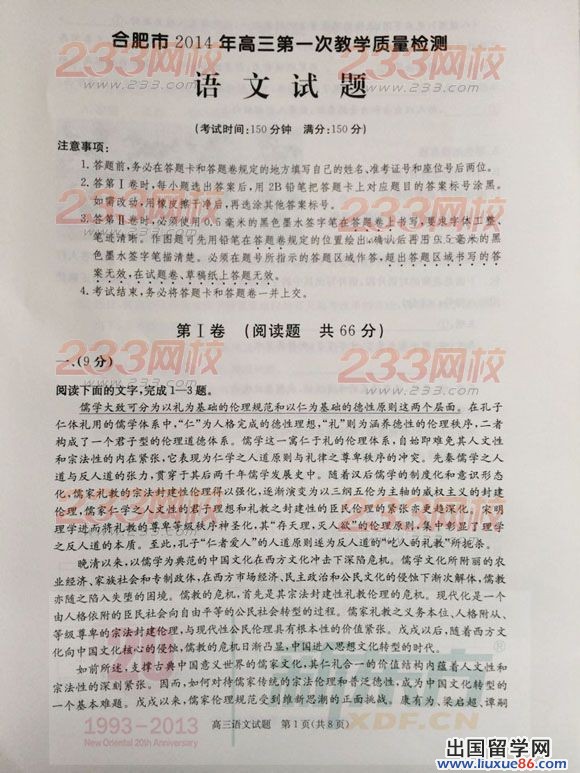 合肥市2014年高三第一次教学质量检测
语文试题
(考试时间:150分钟 满分:150分)
注意事项:
1.答题前,务必在答题卡和答题卷规定的地方填写自己的姓名、准考证号和座位号后两位。
2.答第Ⅰ卷时,每小题选出答案后,用2B铅笔把答题卡上对应题目的答案标号涂黑。
如需改动,用橡皮擦干净后,再选涂其他答案标号。
3.答第Ⅱ卷时,必须使用0.5毫米的黑色墨水签字笔在答题卷上书写,要求字体工整、
笔迹清晰。作图题可先用铅笔在答题卷规定的位置绘出,确认后再用0.5毫米的黑
色墨水签字笔描清楚。必须在题号所指示的答题区域作答,超出答题区域书写的答
案无效,在试题卷、草稿纸上答题无效。
4.考试结束,务必将答题卡和答题卷一并上交。
第Ⅰ卷 (阅读题 共66分)
一、(9分)
阅读下面的文字,完成1—3题。
儒学大致可分为以礼为基础的伦理规范和以仁为基础的德性原则这两个层面。在孔子
仁体礼用的儒学体系中,“仁”为人格完成的德性理想,“礼”则为涵养德性的伦理秩序,二者
构成了一个君子型的伦理道德体系。儒学这一寓仁于礼的伦理体系,自始即难免其人文性
和宗法性的内在紧张,它表现为仁学之人道原则与礼律之尊卑秩序的冲突。先秦儒学之人
道与反人道的张力,贯穿于其后两千年儒学发展史中。随着汉后儒学的制度化和意识形态
化,儒家礼教的宗法封建性伦理得以强化,逐渐演变为以三纲五伦为主轴的威权主义的封建
伦理,儒家仁学之人文性的君子理想和礼教之封建性的臣民伦理的紧张亦更趋深化。宋明
理学进而将礼教的尊卑等级秩序神圣化,其“存天理,灭人欲”的伦理原则,集中彰显了理学
之反人道的本质。至此,孔子“仁者爱人”的人道原则遂为反人道的“吃人的礼教”所扼杀。
晚清以来,以儒学为典范的中国文化在西方文化冲击下深陷危机。儒学文化所附丽的农
业经济、家族社会和专制政体,在西方市场经济、民主政治和公民文化的侵蚀下渐次解体,儒教
亦随之陷入失堕的困境。儒教的危机,首先是其宗法性礼教伦理的危机。现代化是一个
由人格依附的臣民社会向自由平等的公民社会转型的过程。儒家礼教之义务本位、人格附从、
等级尊卑的宗法封建伦理,与现代性公民伦理具有根本性的价值紧张。戊戌以后,随着西方文
化向中国文化核心的侵蚀,儒教的危机日渐凸显,中国进入思想文化转型的时代。
如前所述,支撑古典中国意义世界的儒家文化,其仁礼合一的价值结构内蕴着人文性和
宗法性的深刻紧张。因而,如何对待儒家传统的宗法伦理和普泛德性,成为中国文化转型的
一个基本难题。戊戌以来,儒家伦理规范受到维新思潮的正面挑战。康有为、梁启超、谭嗣
高三语文试题 第1页(共8页)
233网校
1993-2013
New Oriental 20th Anniversary
新东方®
XDF.CN
出国留学网
www.liuxue86.com